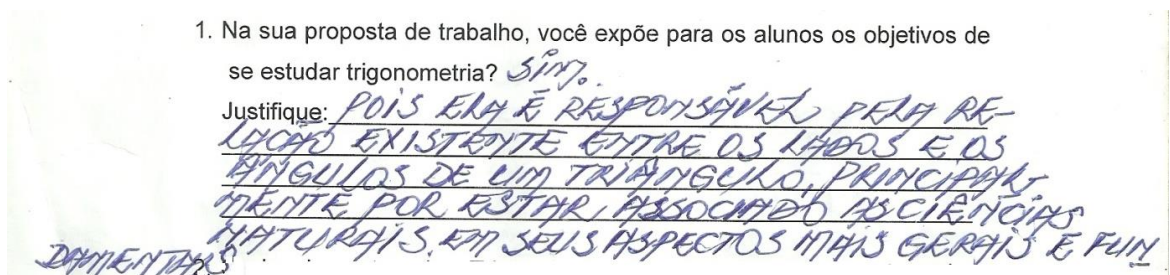 1. Na sua proposta de trabalho, você expõe para os alunos os objetivos de
se estudar trigonometria? Sim.
Justifique: POIS ELA É RESPONSÁVEL PELA RE-
LAÇÃO EXISTENTE ENTRE OS LADOS E OS
ÂNGULOS DE UM TRIÂNGULO, PRINCIPAL-
MENTE POR ESTAR ASSOCIADO AS CIÊNCIAS
NATURAIS. EM SEUS ASPECTOS MAIS GERAIS E FUN
DAMENTAIS